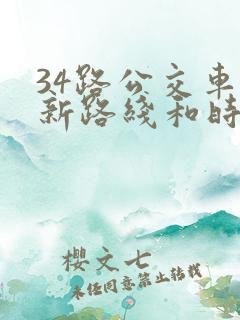 34路公交车
新路线和时
樱文七
未经同意禁止转载